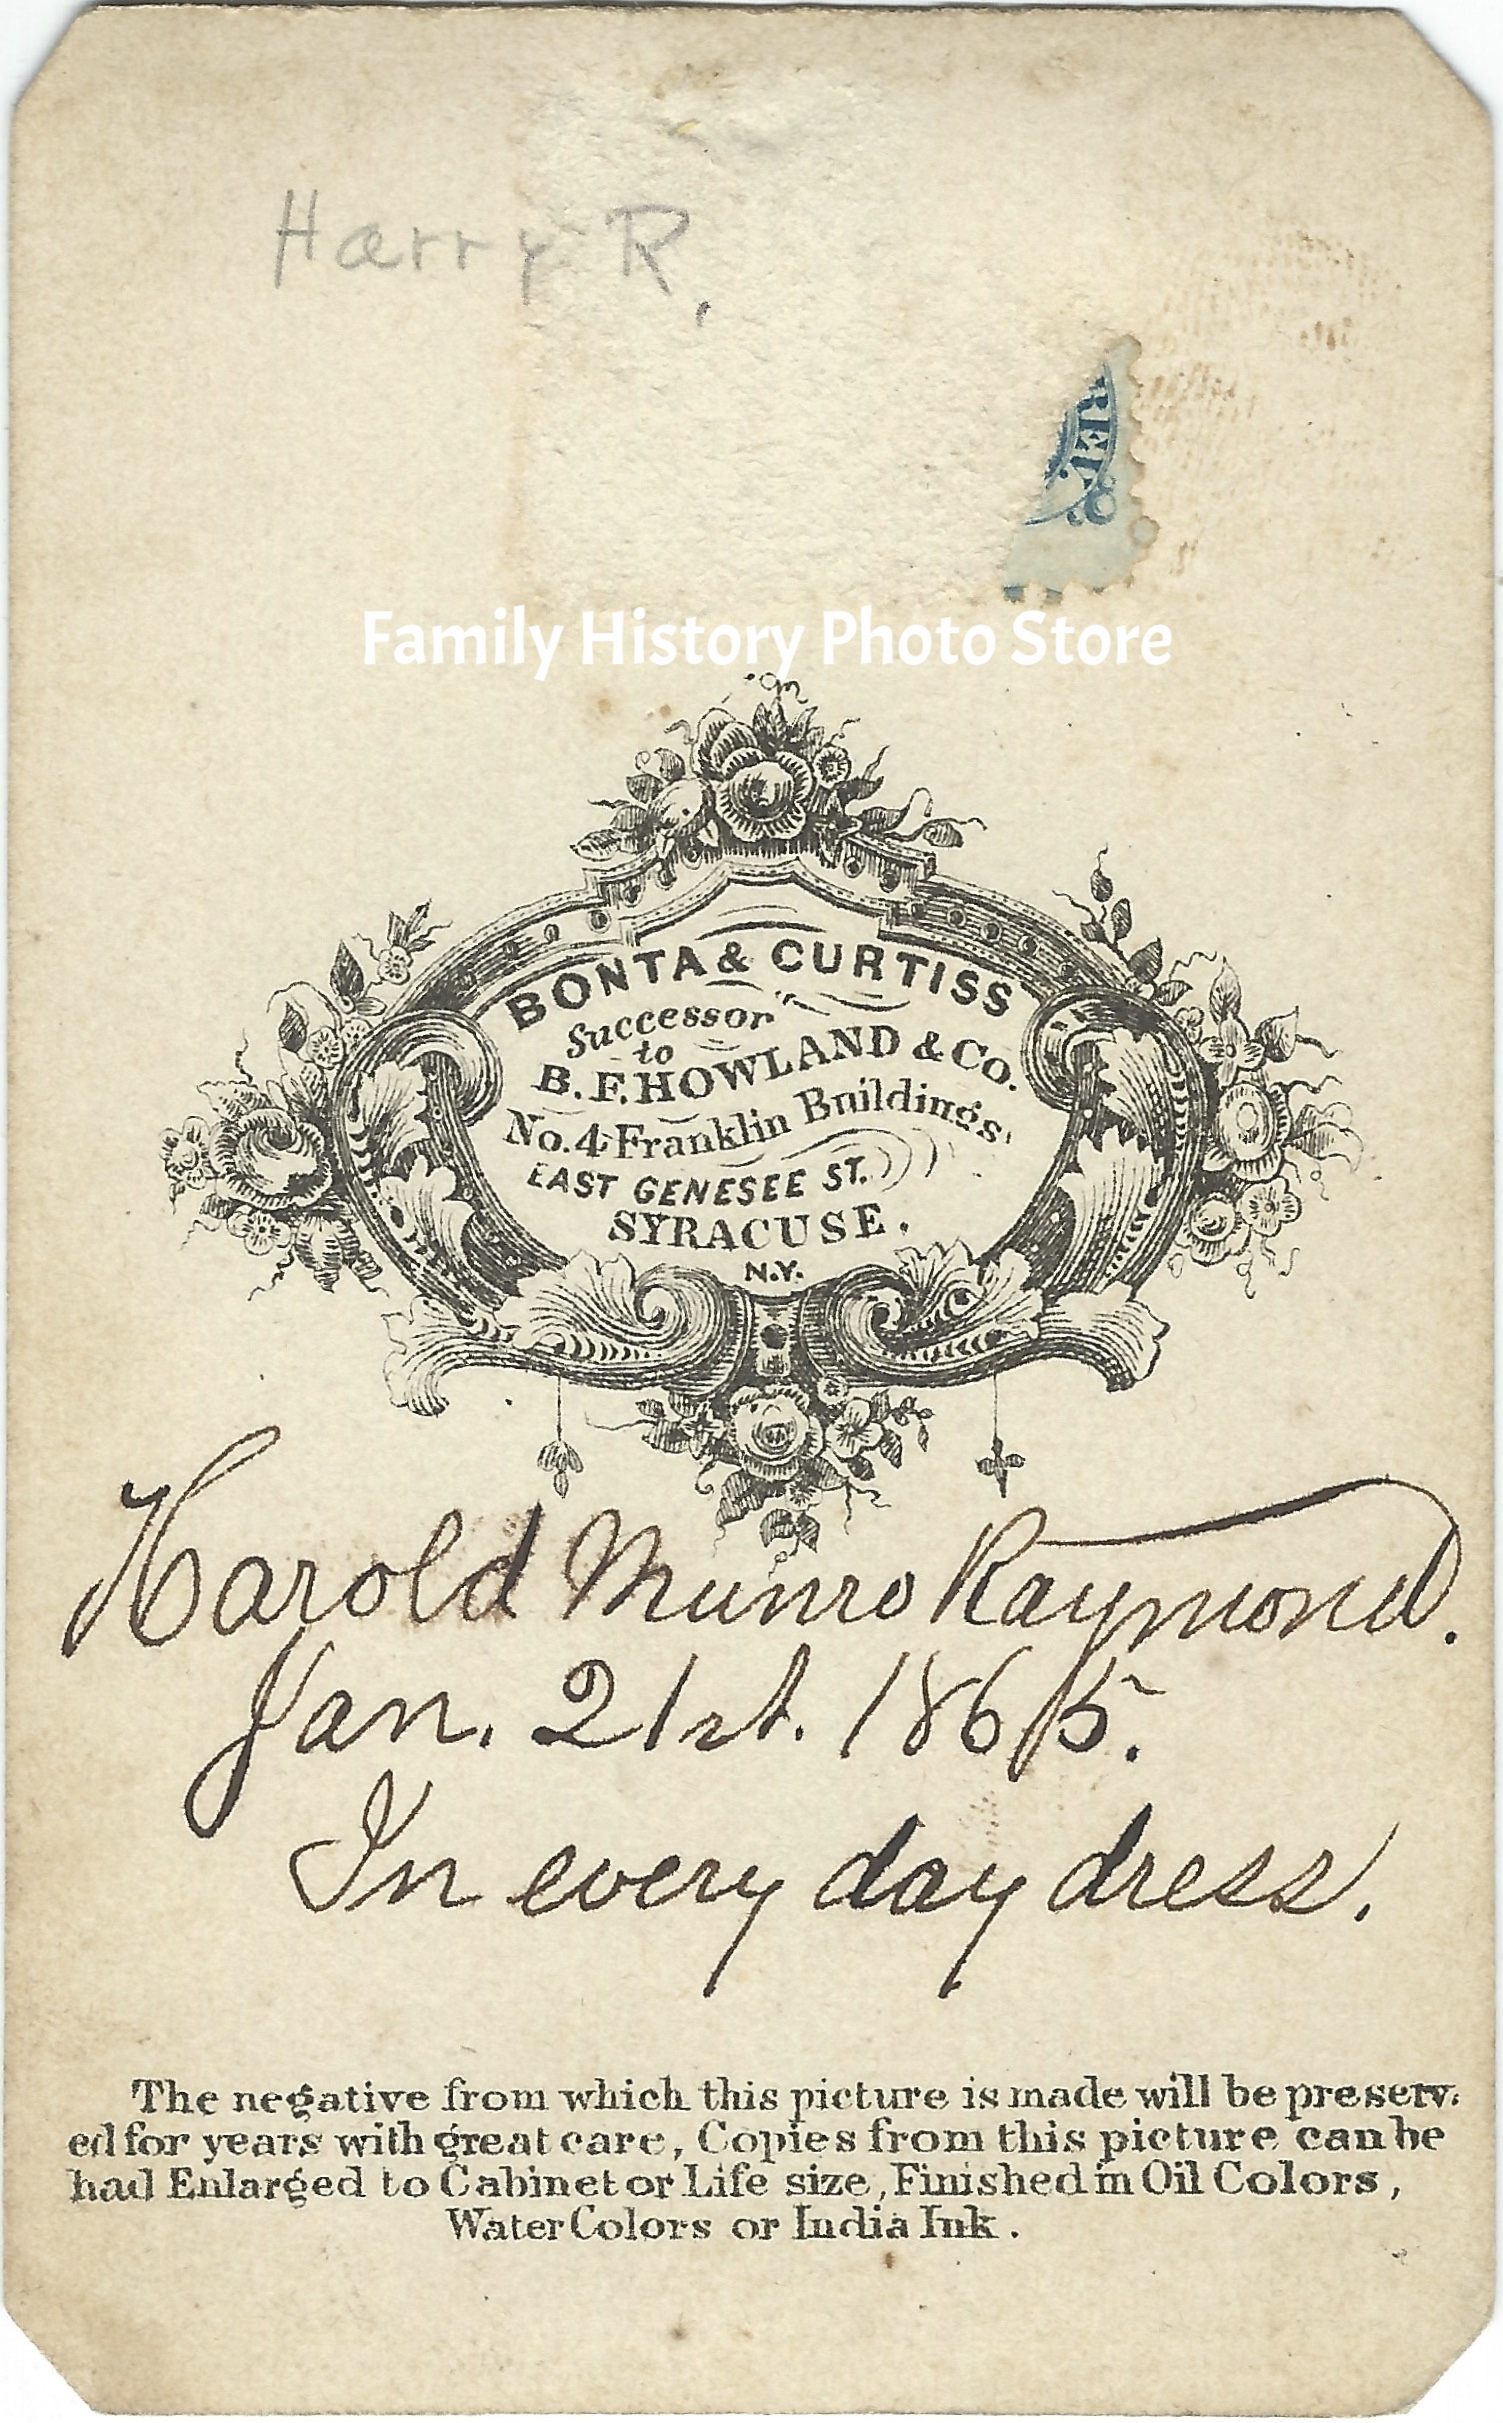 Harry R.
REV.
Family History Photo Store
BONTA & CURTISS
Successor
to
B. F. HOWLAND & Co.
No. 4 Franklin Buildings,
EAST GENESEE ST.
SYRACUSE.
N.Y.
Harold Munro Raymond.
Jan. 21st. 1865.
In every day dress.
The negative from which this picture is made will be preserv-
ed for years with great care, Copies from this picture can be
had Enlarged to Cabinet or Life size, Finished in Oil Colors,
Water Colors or India Ink.